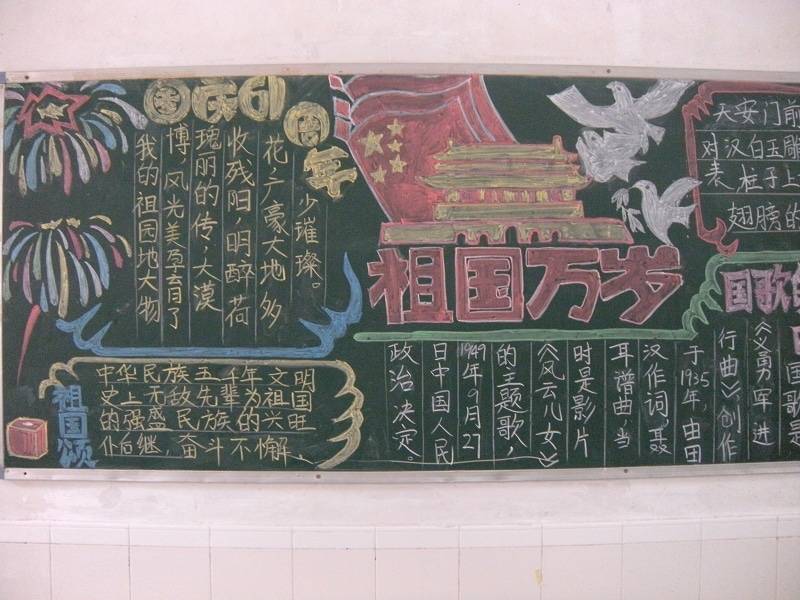 国庆61周年
我的祖园地大物
博,风光美孕育了
瑰丽的传,大漠
收残阳,明醉荷
花,广豪大地多
少璀璨。
祖国颂
中华民族五千年文明
史上无敌先辈为祖国
的强盛民族的兴旺
仆后继,奋斗不懈、
祖国万岁
天安门前
对汉白玉雕
表柱子上
翅膀的
国歌
国歌是
《义勇军进
行曲》创作
于1935年,由田
汉作词,聂
耳谱曲,当
时是影片
《风云儿女》
的主题歌,
1949年9月27
日中国人民
政治决定。